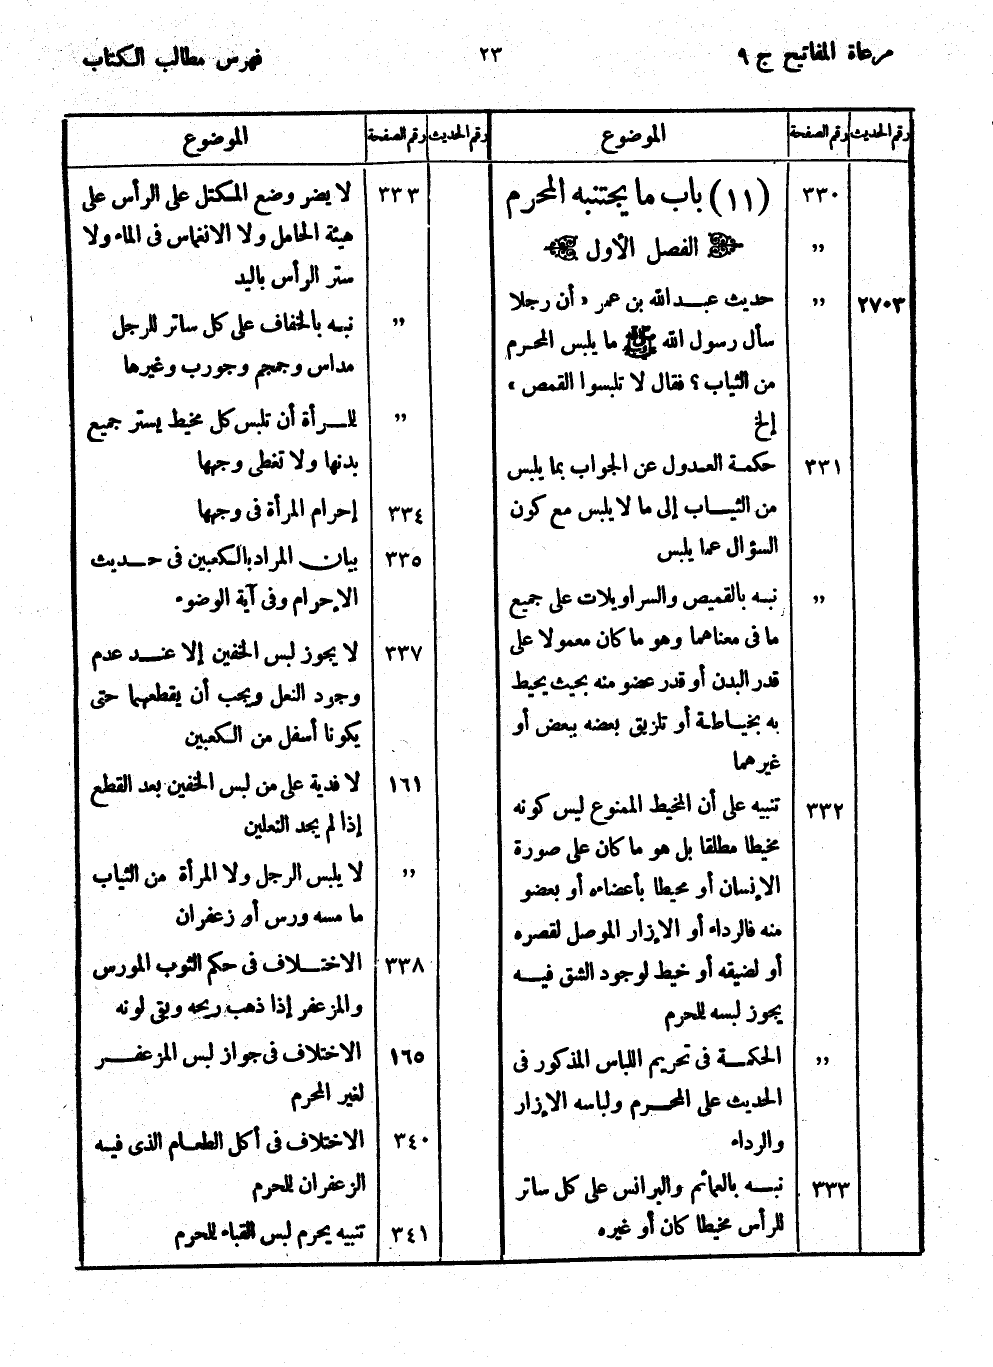 مرعاة المفاتيح ج ٩
٢٣
فهرس مطالب الكتاب
رقم الحديث رقم الصفحة الموضوع
٣٣٠ (١١) باب ما يجتنبه المحرم
,, الفصل الأول
٢٧٠٣ ,, حديث عبد الله بن عمر « أن رجلا
سأل رسول الله ﷺ ما يلبس المحرم
من الثياب ؟ فقال لا تلبسوا القمص »
إلخ
٣٣١ حكمة العدول عن الجواب بما يلبس
من الثياب إلى ما لا يلبس مع كون
السؤال عما يلبس
,, نبه بالقميص والسراويلات على جميع
ما فى معناهما وهو ما كان معمولا على
قدر البدن أو قدر عضو منه بحيث يحيط
به بخياطة أو تلزيق بعضه ببعض أو
غيرهما
٣٣٢ تنبيه على أن المخيط الممنوع ليس كونه
مخيطا مطلقا بل هو ما كان على صورة
الإنسان أو محيطا بأعضاءه أو بعضو
منه فالرداء أو الإزار الموصل لقصره
أو لضيقه أو خيط لوجود الشق فيه
يجوز لبسه للمحرم
,, الحكمة فى تحريم اللباس المذكور فى
الحديث على المحرم ولباسه الإزار
والرداء
٣٣٣ نبه بالعمائم والبرانس على كل ساتر
للرأس مخيطا كان أو غيره
رقم الحديث رقم الصفحة الموضوع
٣٣٣ لا يضر وضع المكتل على الرأس على
هيئة الحامل ولا الانغماس فى الماء ولا
ستر الرأس باليد
,, نبه بالخفاف على كل ساتر للرجل
مداس وجمجم وجورب وغيرها
,, للمرأة أن تلبس كل مخيط يستر جميع
بدنها ولا تغطى وجهها
٣٣٤ إحرام المرأة فى وجهها
٣٣٥ بيان المراد بالكعبين فى حديث
الإحرام وفى آية الوضوء
٣٣٧ لا يجوز لبس الخفين إلا عند عدم
وجود النعل ويجب أن يقطعهما حتى
يكونا أسفل من الكعبين
١٦١ لا فدية على من لبس الخفين بعد القطع
إذا لم يجد النعلين
,, لا يلبس الرجل ولا المرأة من الثياب
ما مسه ورس أو زعفران
٣٣٨ الاختلاف فى حكم الثوب المورس
والمزعفر إذا ذهب ريحه وبقى لونه
١٦٥ الاختلاف فى جواز لبس المزعفر
لغير المحرم
٣٤٠ الاختلاف فى أكل الطعام الذى فيه
الزعفران للمحرم
٣٤١ تنبيه يحرم لبس القباء للمحرم